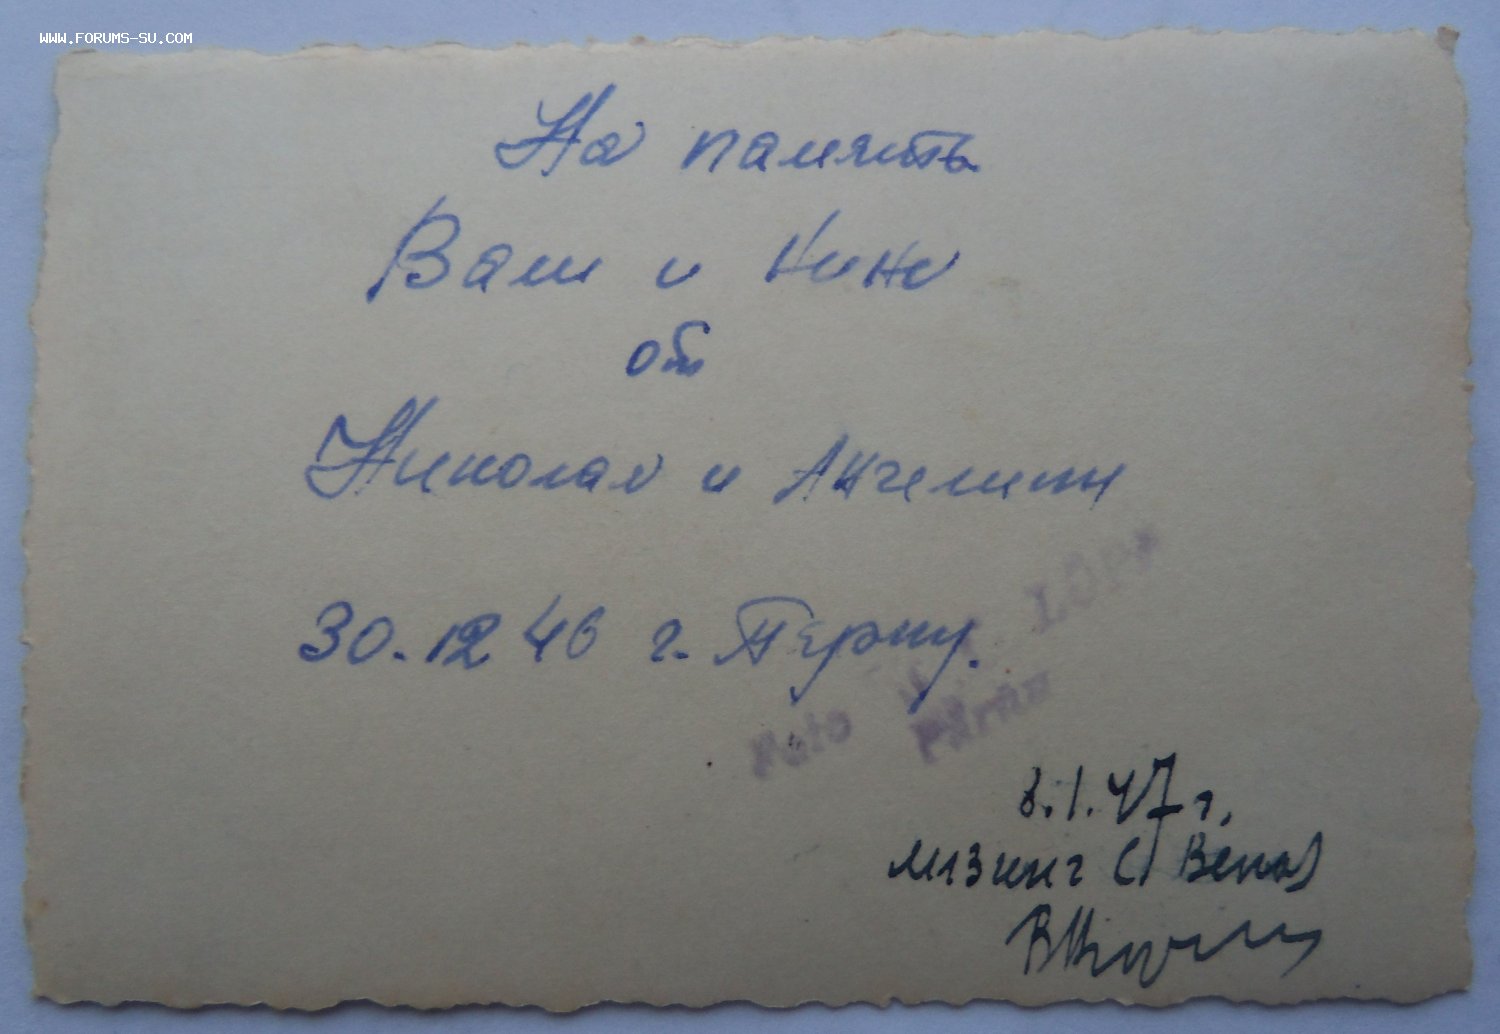 WWW.FORUMS-SU.COM
На память
Вам и Нине
от
Николая и Ангелины
30.12 46 г. Пярну.
Foto
Pärnu
8.1.47 г.
Мизинг С Вена